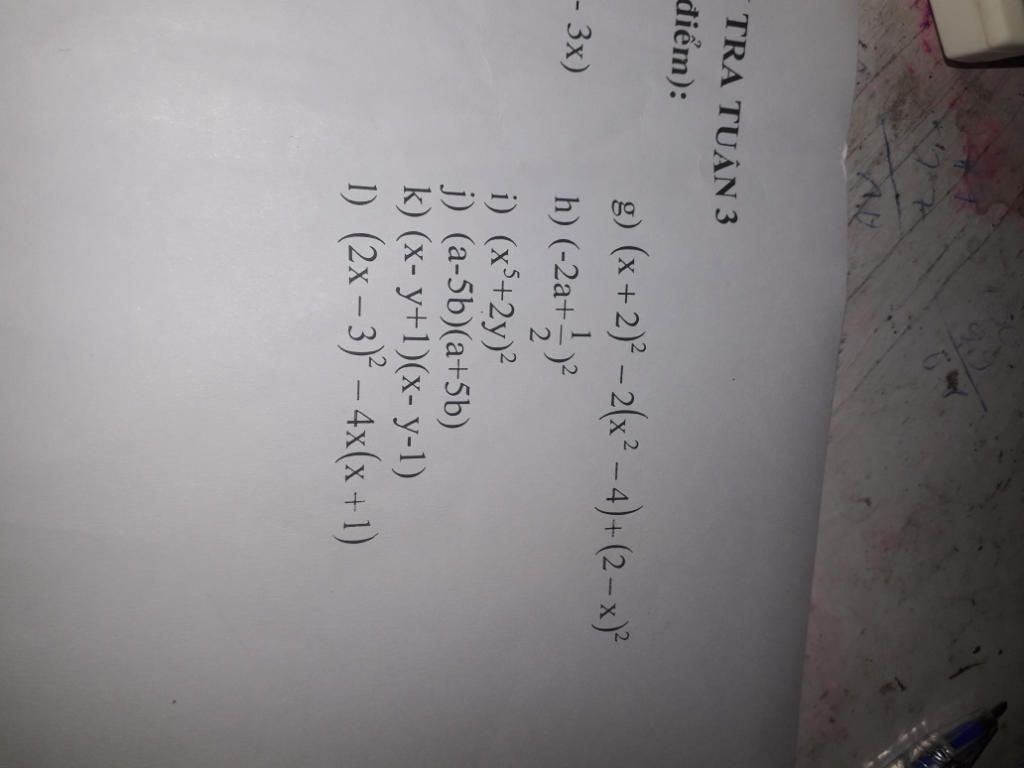 TRA TUẦN 3
điểm):
- 3x)
g) (x + 2)² – 2(x² – 4) + (2 – x)²
h) (-2a+½)²
i) (x⁵+2y)²
j) (a-5b)(a+5b)
k) (x- y+1)(x- y-1)
l) (2x – 3)² – 4x(x + 1)